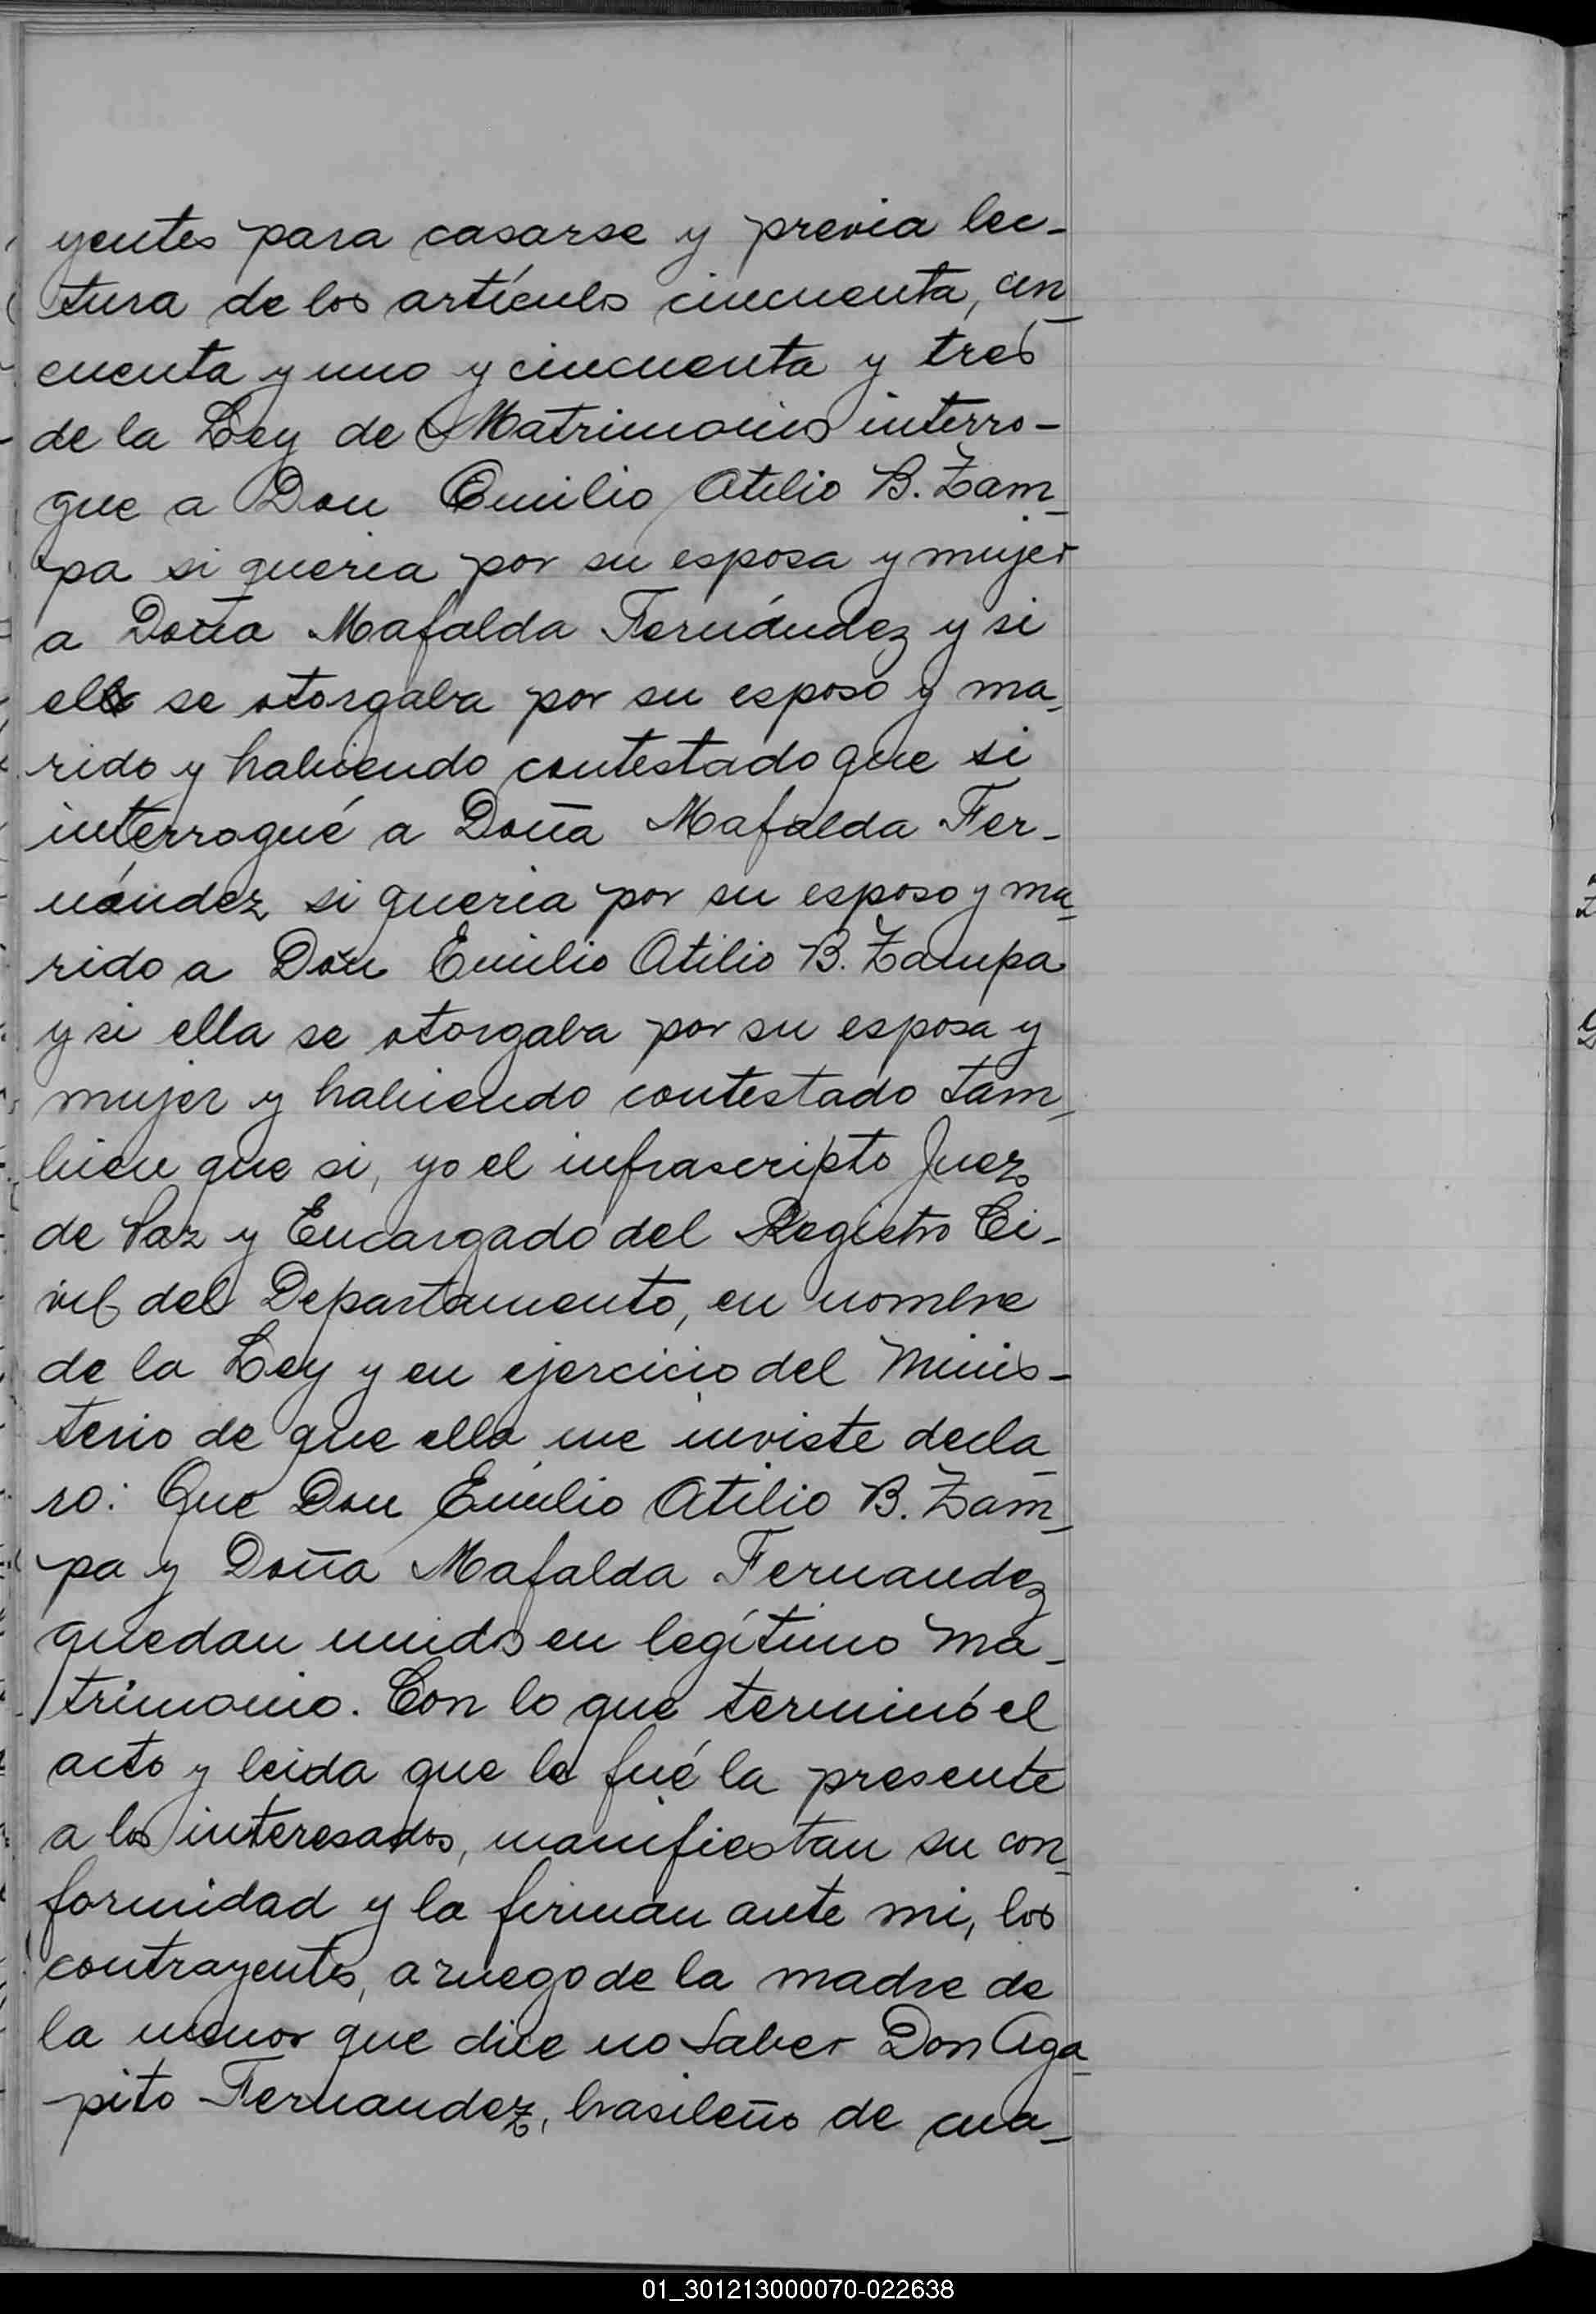 yentes para casarse y previa lec-
tura de los artículos cincuenta, cin-
cuenta y uno y cincuenta y tres
de la Ley de Matrimonios interro-
gue a Don Emilio Atilio B. Zam-
pa si queria por su esposa y mujer
a Doña Mafalda Fernández y si
el se otorgaba por su esposo y ma-
rido y habiendo contestado que si
interrogué a Doña Mafalda Fer-
nández si queria por su esposo y ma-
rido a Don Emilio Atilio B. Zampa
y si ella se otorgaba por su esposa y
mujer y habiendo contestado tam-
bien que si, yo el infrascripto Juez
de Paz y Encargado del Registro Ci-
vil del Departamento, en nombre
de la Ley y en ejercicio del Minis-
terio de que ella me inviste decla-
ro: Que Don Emilio Atilio B. Zam-
pa y Doña Mafalda Fernandez
quedan unidos en legítimo ma-
trimonio. Con lo que terminó el
acto y leida que le fué la presente
a los interesados, manifiestan su con-
formidad y la firman ante mi, los
contrayentes, a ruego de la madre de
la menor que dice no saber Don Aga-
pito Fernandez, brasileño de cua-
01_301213000070-022638